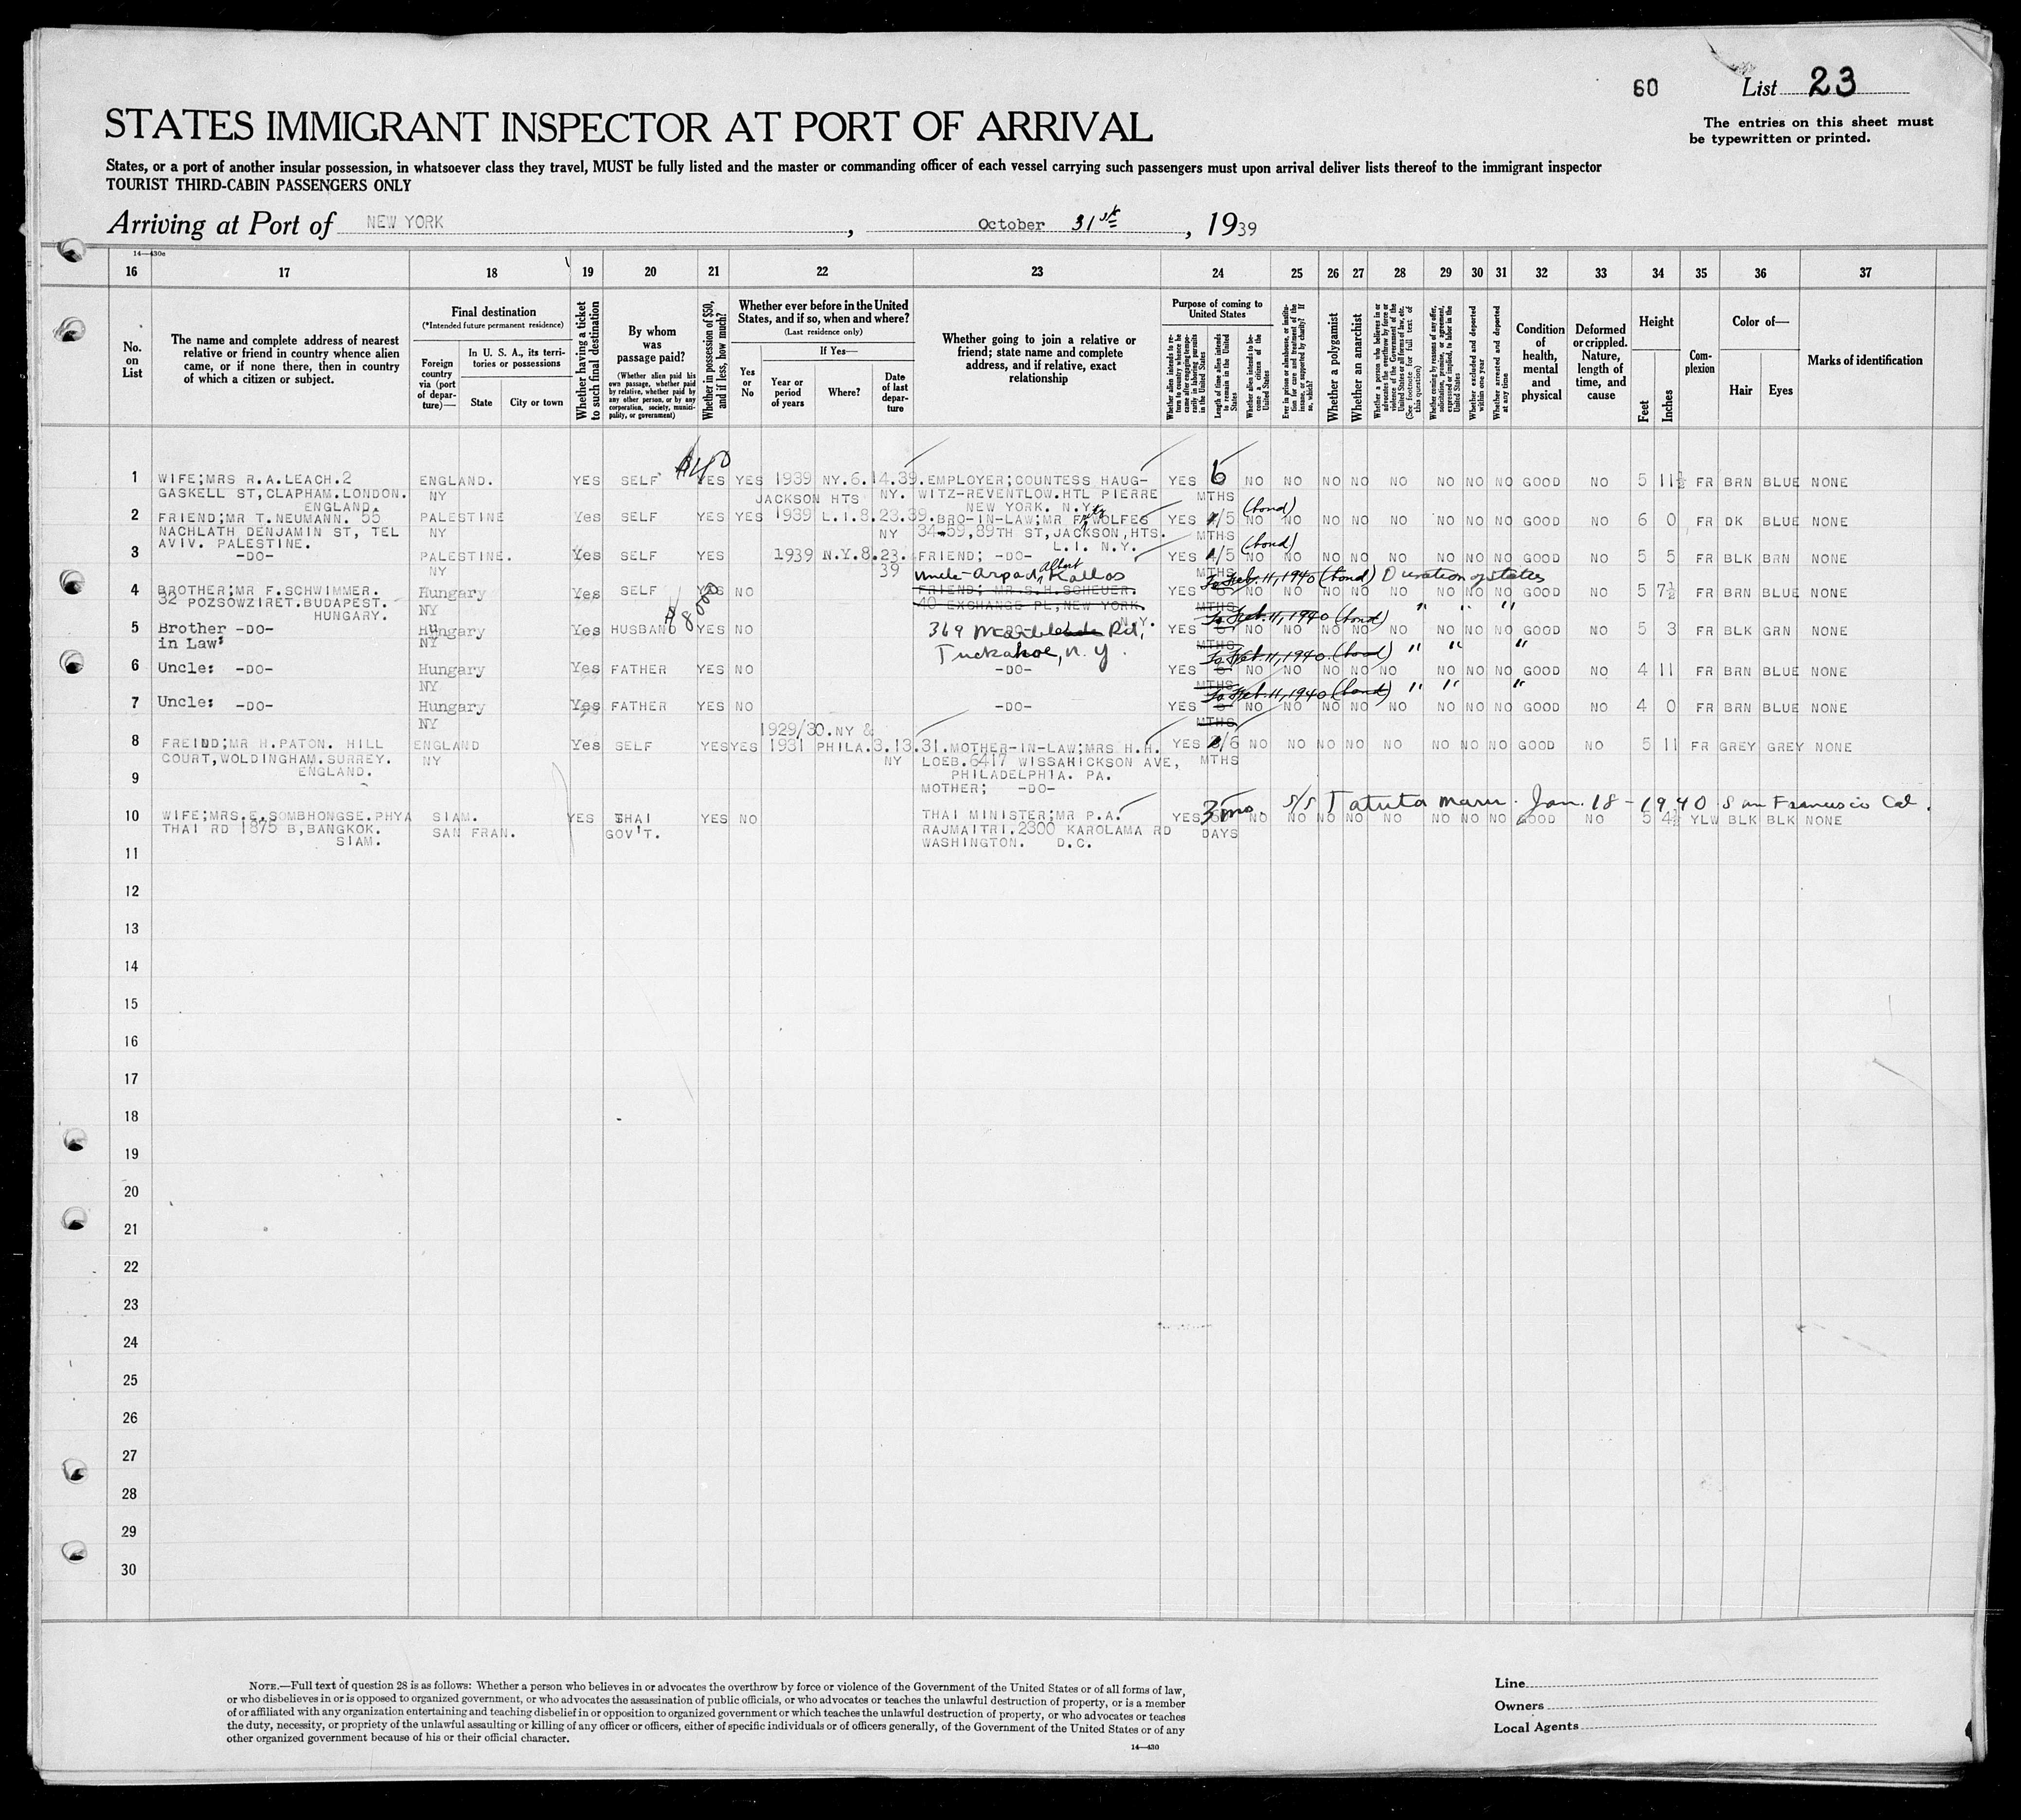 60 List 23
STATES IMMIGRANT INSPECTOR AT PORT OF ARRIVAL
The entries on this sheet must
be typewritten or printed.
States, or a port of another insular possession, in whatsoever class they travel, MUST be fully listed and the master or commanding officer of each vessel carrying such passengers must upon arrival deliver lists thereof to the immigrant inspector
TOURIST THIRD-CABIN PASSENGERS ONLY
Arriving at Port of NEW YORK, October 31st, 1939
14—430e
16 17 18 19 20 21 22 23 24 25 26 27 28 29 30 31 32 33 34 35 36 37
No. on List
The name and complete address of nearest
relative or friend in country whence alien
came, or if none there, then in country
of which a citizen or subject.
Final destination
(*Intended future permanent residence)
Foreign country via (port of departure)—
In U. S. A., its territories or possessions
State City or town
Whether having a ticket to such final destination
By whom was passage paid?
(Whether alien paid his own passage, whether paid by relative, whether paid by any other person, or by any corporation, society, municipality, or government)
Whether in possession of $50, and if less, how much?
Whether ever before in the United
States, and if so, when and where?
(Last residence only)
Yes or No
If Yes—
Year or period of years
Where?
Date of last departure
Whether going to join a relative or
friend; state name and complete
address, and if relative, exact
relationship
Purpose of coming to United States
Whether alien intends to return to country whence he came after engaging temporarily in laboring pursuits in the United States
Length of time alien intends to remain in the United States
Whether alien intends to become a citizen of the United States
Ever in prison or almshouse, or institution for care and treatment of the insane, or supported by charity? If so, which?
Whether a polygamist
Whether an anarchist
Whether a person who believes in or advocates the overthrow by force or violence of the Government of the United States or all forms of law, etc. (See footnote for full text of this question)
Whether coming by reason of any offer, solicitation, promise, or agreement, expressed or implied, to labor in the United States
Whether excluded and deported within one year
Whether arrested and deported at any time
Condition of health, mental and physical
Deformed or crippled. Nature, length of time, and cause
Height
Feet Inches
Complexion
Color of—
Hair Eyes
Marks of identification
$40
1 WIFE;MRS R.A.LEACH.2 ENGLAND. YES SELF YES YES 1939 NY.6.14.39. EMPLOYER;COUNTESS HAUG- YES 6 NO NO NO NO NO NO NO NO GOOD NO 5 11½ FR BRN BLUE NONE
GASKELL ST,CLAPHAM.LONDON. NY JACKSON HTS NY. WITZ-REVENTLOW.HTL PIERRE MTHS
ENGLAND. NEW YORK. N.Y. (bond)
2 FRIEND;MR T.NEUMANN. 55 PALESTINE Yes SELF YES YES 1939 L.I.8.23.39. BRO-IN-LAW;MR Fritz WOLFES YES /5 NO NO NO NO NO NO NO NO GOOD NO 6 0 FR DK BLUE NONE
NACHLATH DENJAMIN ST, TEL NY NY 34-59,89TH ST,JACKSON,HTS. MTHS
AVIV. PALESTINE. L.I. N.Y. (bond)
3 -DO- PALESTINE. Yes SELF YES 1939 N.Y.8.23. FRIEND; -DO- YES /5 NO NO NO NO NO NO NO NO GOOD NO 5 5 FR BLK BRN NONE
NY 39 Uncle-Arpad Albert Kallos MTHS
To Feb. 11, 1940 (bond) Duration of status
4 BROTHER;MR F.SCHWIMMER. Hungary Yes SELF YES NO FRIEND; MR S.H.SCHEUER. YES 6 NO NO NO NO NO NO NO NO GOOD NO 5 7½ FR BRN BLUE NONE
32 POZSOWZIRET.BUDAPEST. NY $8000 40 EXCHANGE PL,NEW YORK. MTHS
HUNGARY. N.Y. To Feb. 11, 1940 (bond) " " "
5 Brother -DO- Hungary Yes HUSBAND YES NO 369 Rd, YES 6 NO NO NO NO NO NO NO NO GOOD NO 5 3 FR BLK GRN NONE
in Law: NY Tuckahoe, N.Y. MTHS
To Feb. 11, 1940 (bond) " " "
6 Uncle: -DO- Hungary Yes FATHER YES NO -DO- YES 6 NO NO NO NO NO NO NO NO GOOD NO 4 11 FR BRN BLUE NONE
NY MTHS
To Feb. 11, 1940 (bond) " " "
7 Uncle: -DO- Hungary Yes FATHER YES NO -DO- YES 6 NO NO NO NO NO NO NO NO GOOD NO 4 0 FR BRN BLUE NONE
NY MTHS
1929/30.NY &
8 FREIND;MR H.PATON. HILL ENGLAND Yes SELF YES YES 1931 PHILA.3.13.31. MOTHER-IN-LAW;MRS H.H. YES /6 NO NO NO NO NO NO NO NO GOOD NO 5 11 FR GREY GREY NONE
COURT,WOLDINGHAM.SURREY. NY NY LOEB.6417 WISSAHICKSON AVE, MTHS
ENGLAND. PHILADELPHIA. PA.
9 MOTHER; -DO-
S/S Tatuta Maru. Jan. 18-1940 San Francisco Cal.
10 WIFE;MRS.E.SOMBHONGSE.PHYA SIAM. YES THAI YES NO THAI MINISTER;MR P.A. YES 3 mo. NO NO NO NO NO NO NO NO GOOD NO 5 4½ YLW BLK BLK NONE
THAI RD 1875 B,BANGKOK. SAN FRAN. GOV'T. RAJMAITRI.2300 KAROLAMA RD DAYS
SIAM. WASHINGTON. D.C.
11
12
13
14
15
16
17
18
19
20
21
22
23
24
25
26
27
28
29
30
NOTE.—Full text of question 28 is as follows: Whether a person who believes in or advocates the overthrow by force or violence of the Government of the United States or of all forms of law,
or who disbelieves in or is opposed to organized government, or who advocates the assassination of public officials, or who advocates or teaches the unlawful destruction of property, or is a member
of or affiliated with any organization entertaining and teaching disbelief in or opposition to organized government or which teaches the unlawful destruction of property, or who advocates or teaches
the duty, necessity, or propriety of the unlawful assaulting or killing of any officer or officers, either of specific individuals or of officers generally, of the Government of the United States or of any
other organized government because of his or their official character.
14—430
Line
Owners
Local Agents